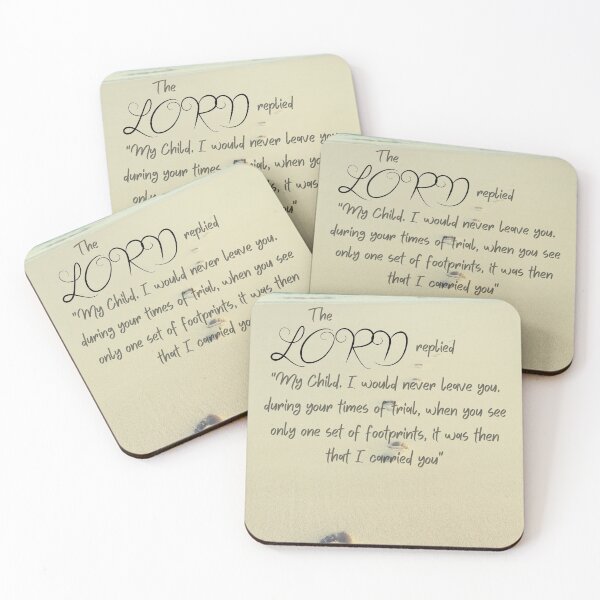 The
LORD replied
"My Child. I would never leave
during your times trial, when you
only it was
you"
The
LORD replied
"My Child. I would never leave you.
during your times of trial, when you see
only one set of footprints, it was then
that I carried you"
The
LORD replied
"My Child. I would never leave you.
during your times of trial, when you see
only one set of footprints, it was then
that I carried
The
LORD replied
"My Child. I would never leave you.
during your times of trial, when you see
only one set of footprints, it was then
that I carried you"